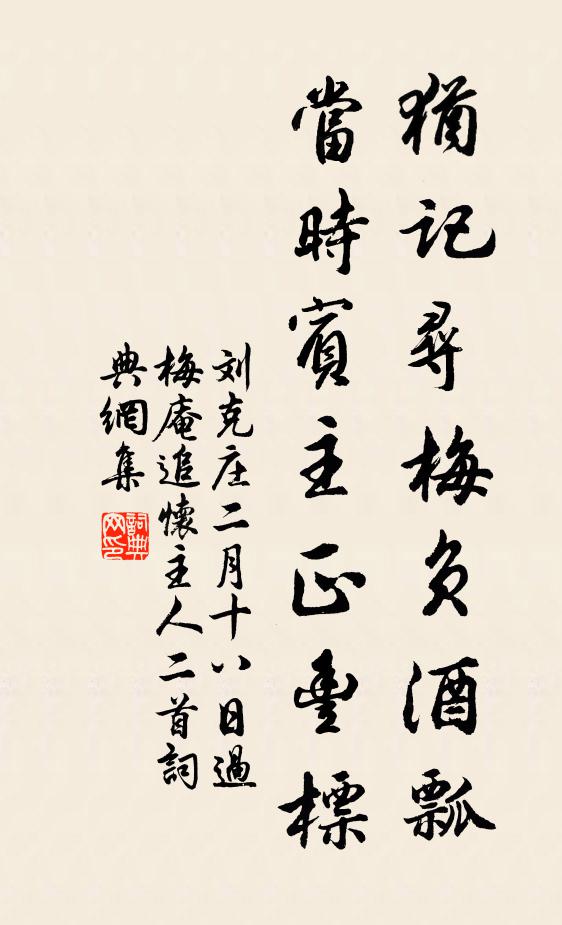 猶記尋梅負酒瓢
當時賓主正豐標
刘克庄二月十八日過
梅庵追懷主人二首詞
典網集
詞典网印